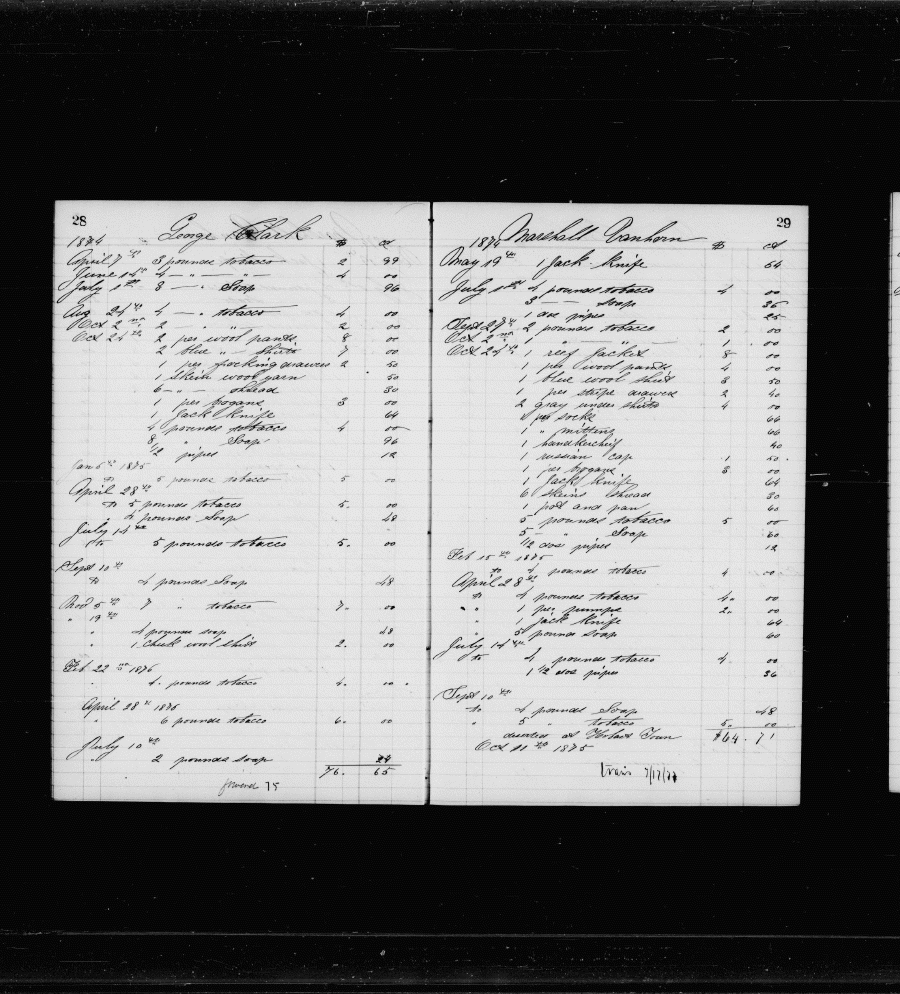 28
George Clark
1874 $ ct
April 7th 3 pounds tobacco 2 99
June 14th 4 — " — " — 4 00
July 1st 8 — " Soap 96
Aug 24th 4 — " tobacco 4 00
Oct 2nd 2 - " " 2 00
Oct 24th 2 prs wool pants 8 00
2 blue " shirts 7 00
1 per drawers 2 50
1 skein wool yarn 50
6 — " thread 30
1 per brogans 3 00
1 Jack knife 64
4 pounds tobacco 4 00
8 " Soap 96
1/2 pipes 12
Jan 5th 1875
to 5 pounds tobacco 5 00
April 28th
to 5 pounds tobacco 5. 00
" 4 pounds Soap 48
July 14th
to 5 pounds tobacco 5. 00
Sept 10th
to 4 pounds Soap 48
5th 7 " tobacco 7. 00
" 19th
" 4 pounds soap 48
" 1 check wool shirt 2. 00
Feb 22nd 1876
" 4 pounds tobacco 4. 00
April 28th 1876
" 6 pounds tobacco 6. 00
July 10th
" 2 pounds soap 24
76. 65
75
29
Marshall Vanhorn
1874 $ ct
May 19th 1 Jack knife 64
July 1st 4 pounds tobacco 4 00
3 — — soap 36
1 doz pipes 25
Sept 27th 2 pounds tobacco 2 00
Oct 2nd 1 — " — " — 1 00
Oct 24th 1 reef Jacket 8 00
1 per wool pants 4 00
1 blue wool shirt 3 50
1 per stripe drawers 2 40
2 gray under shirts 4 00
socks 66
1 " mittens 66
1 handkerchief 40
1 russian cap 1 50
1 per brogans 3 00
1 Jack knife 64
6 skeins thread 30
1 pot and pan 60
5 pounds tobacco 5 00
5 — " Soap 60
1/2 doz pipes 12
Feb 15th 1875
to 4 pounds tobacco 4 00
April 28th
to 4 pounds tobacco 4. 00
" " 1 per pumps 2. 00
" 1 Jack knife 64
" 5 pounds soap 60
July 14th
to 4 pounds tobacco 4 00
1 1/2 doz pipes 36
Sept 10th
to 4 pounds Soap 48
" 5 " tobacco 5. 00
deserted at Hobart Town $64. 71
Oct 11th 1875